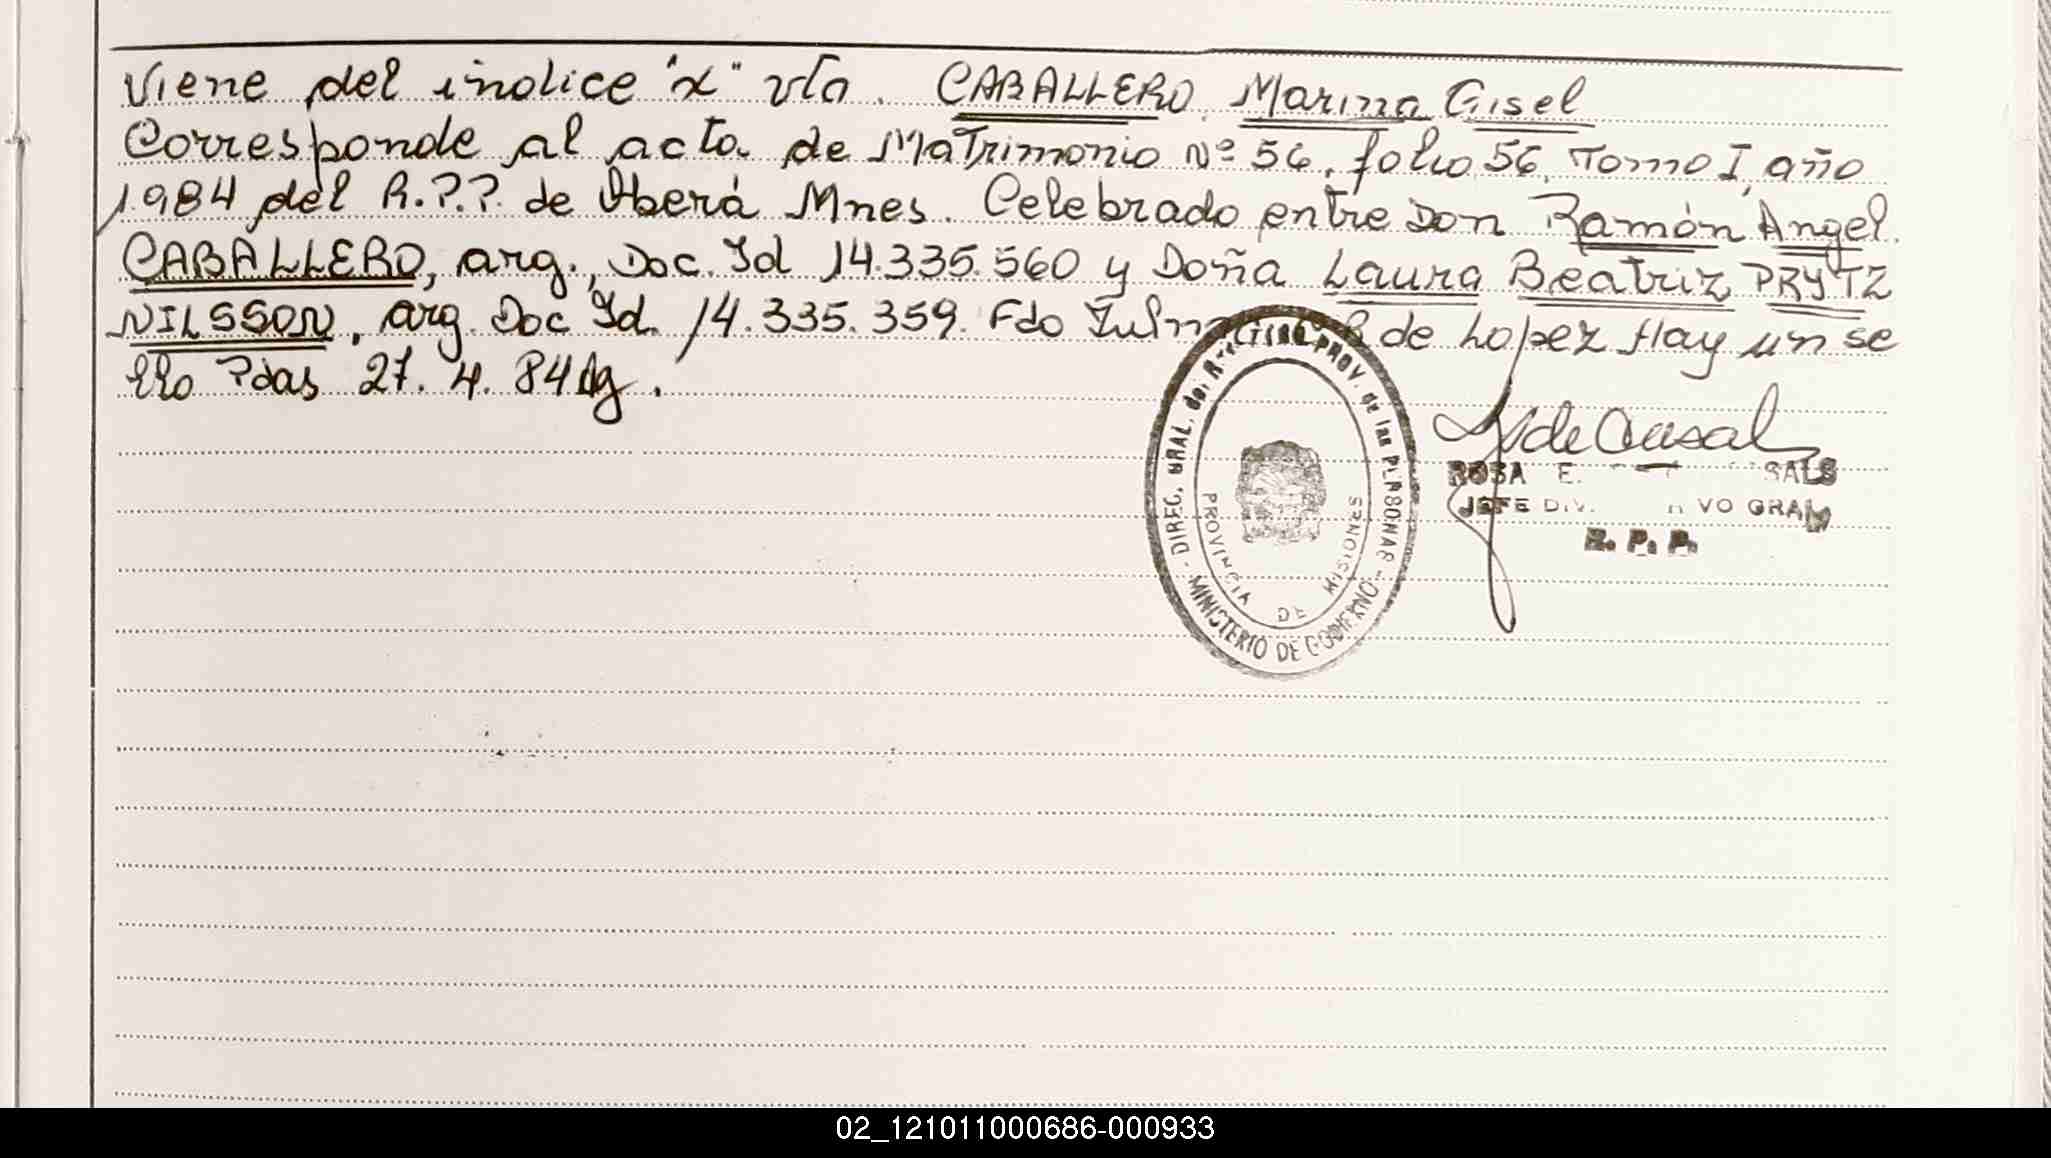 Viene del indice "x" vta. CABALLERO, Marina Gisel
Corresponde al acta de Matrimonio Nº 56, folio 56, Tomo I, año
1984 del R.P.P. de Oberá Mnes. Celebrado entre Don Ramón Angel
CABALLERO, arg., Doc. Id 14.335.560 y Doña Laura Beatriz PRYTZ
NILSSON, arg. Doc Id. 14.335.359. Fdo de Lopez Hay un se
llo Pdas 27.4.84
DIREC. GRAL. del PROV. de las PERSONAS
MINISTERIO DE GOBIERNO
PROVINCIA DE MISIONES
ROSA E.
JEFE DIV. GRAL
R. P. P.
02_121011000686-000933